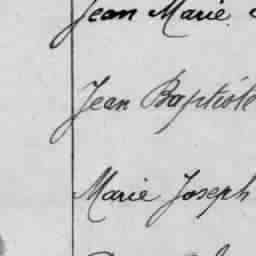 Jean Marie
Jean Baptiste
Marie Joseph